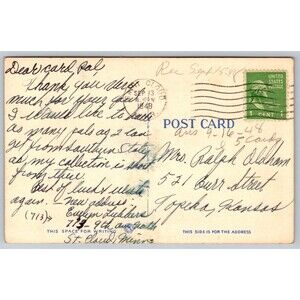 Dear card Pal,
Thank you very
much for your
I would like to have
as many pals as I can
get from Southern States
as my collection is
from there.
Best of luck & write
again. - new address:
(713) Evelyn
713 - 9th Ave
St. Cloud, Minn.
THIS SPACE FOR WRITING
SEP 13
1948
Rec Sept 15
UNITED STATES
POSTAGE
1 CENT 1
POST CARD
Ans 9-16-48
5 Cards
Mrs. Ralph Oldham
521 Burr Street
Topeka, Kansas
THIS SIDE IS FOR THE ADDRESS